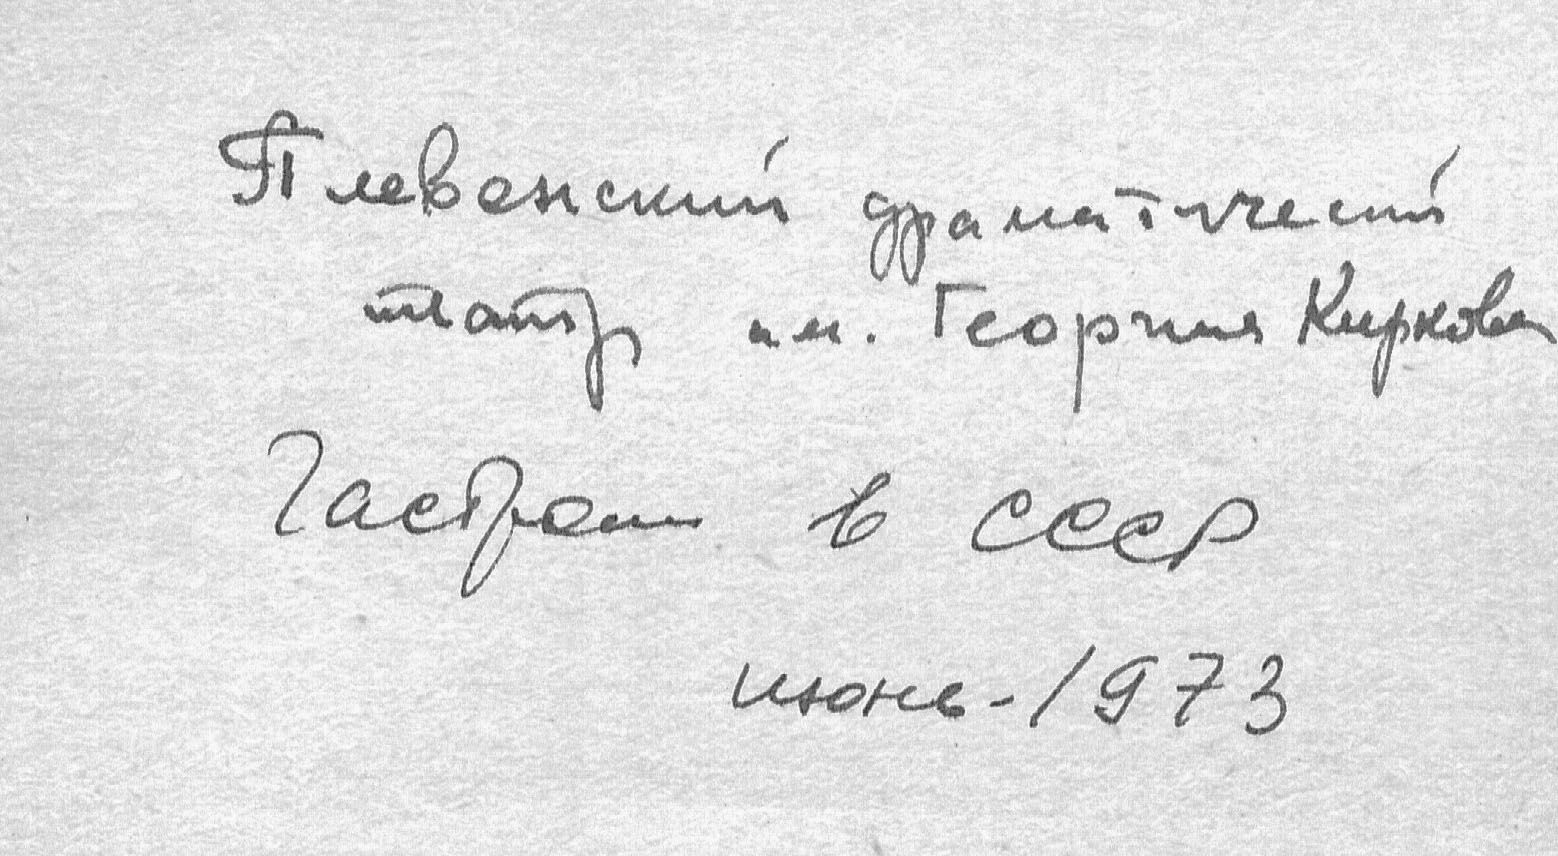 Плевенский драматический
театр им. Георгия Киркова
Гастроли в СССР
июнь-1973